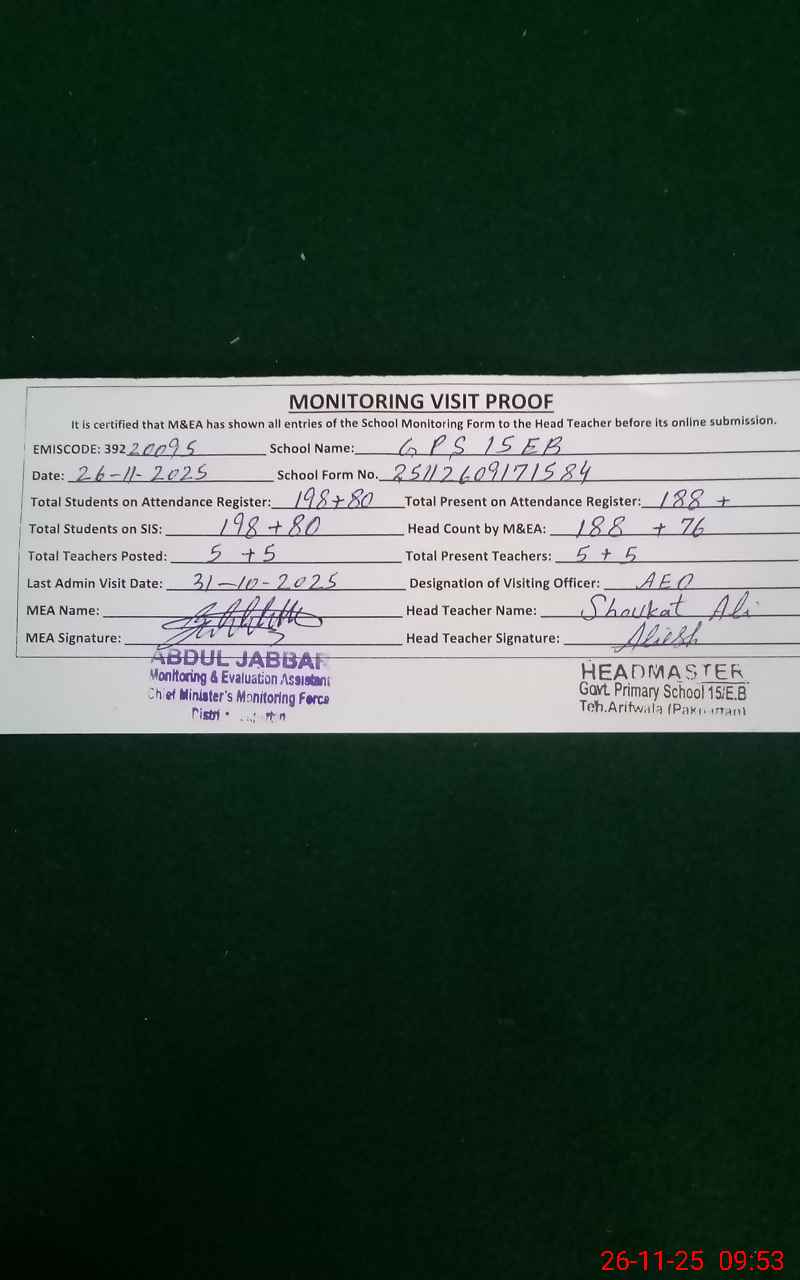 MONITORING VISIT PROOF
It is certified that M&EA has shown all entries of the School Monitoring Form to the Head Teacher before its online submission.
EMISCODE: 39220095 School Name: GPS 15 EB
Date: 26-11-2025 School Form No. 25112609171584
Total Students on Attendance Register: 198+80 Total Present on Attendance Register: 188 +
Total Students on SIS: 198+80 Head Count by M&EA: 188 + 76
Total Teachers Posted: 5 +5 Total Present Teachers: 5 + 5
Last Admin Visit Date: 31-10-2025 Designation of Visiting Officer: AEO
MEA Name: Head Teacher Name: Shoukat Ali
MEA Signature: Head Teacher Signature:
ABDUL JABBAR HEADMASTER
Monitoring & Evaluation Assistant Govt. Primary School 15/E.B
Chief Minister's Monitoring Force Teh.Arifwala (Pakpattan)
26-11-25 09:53